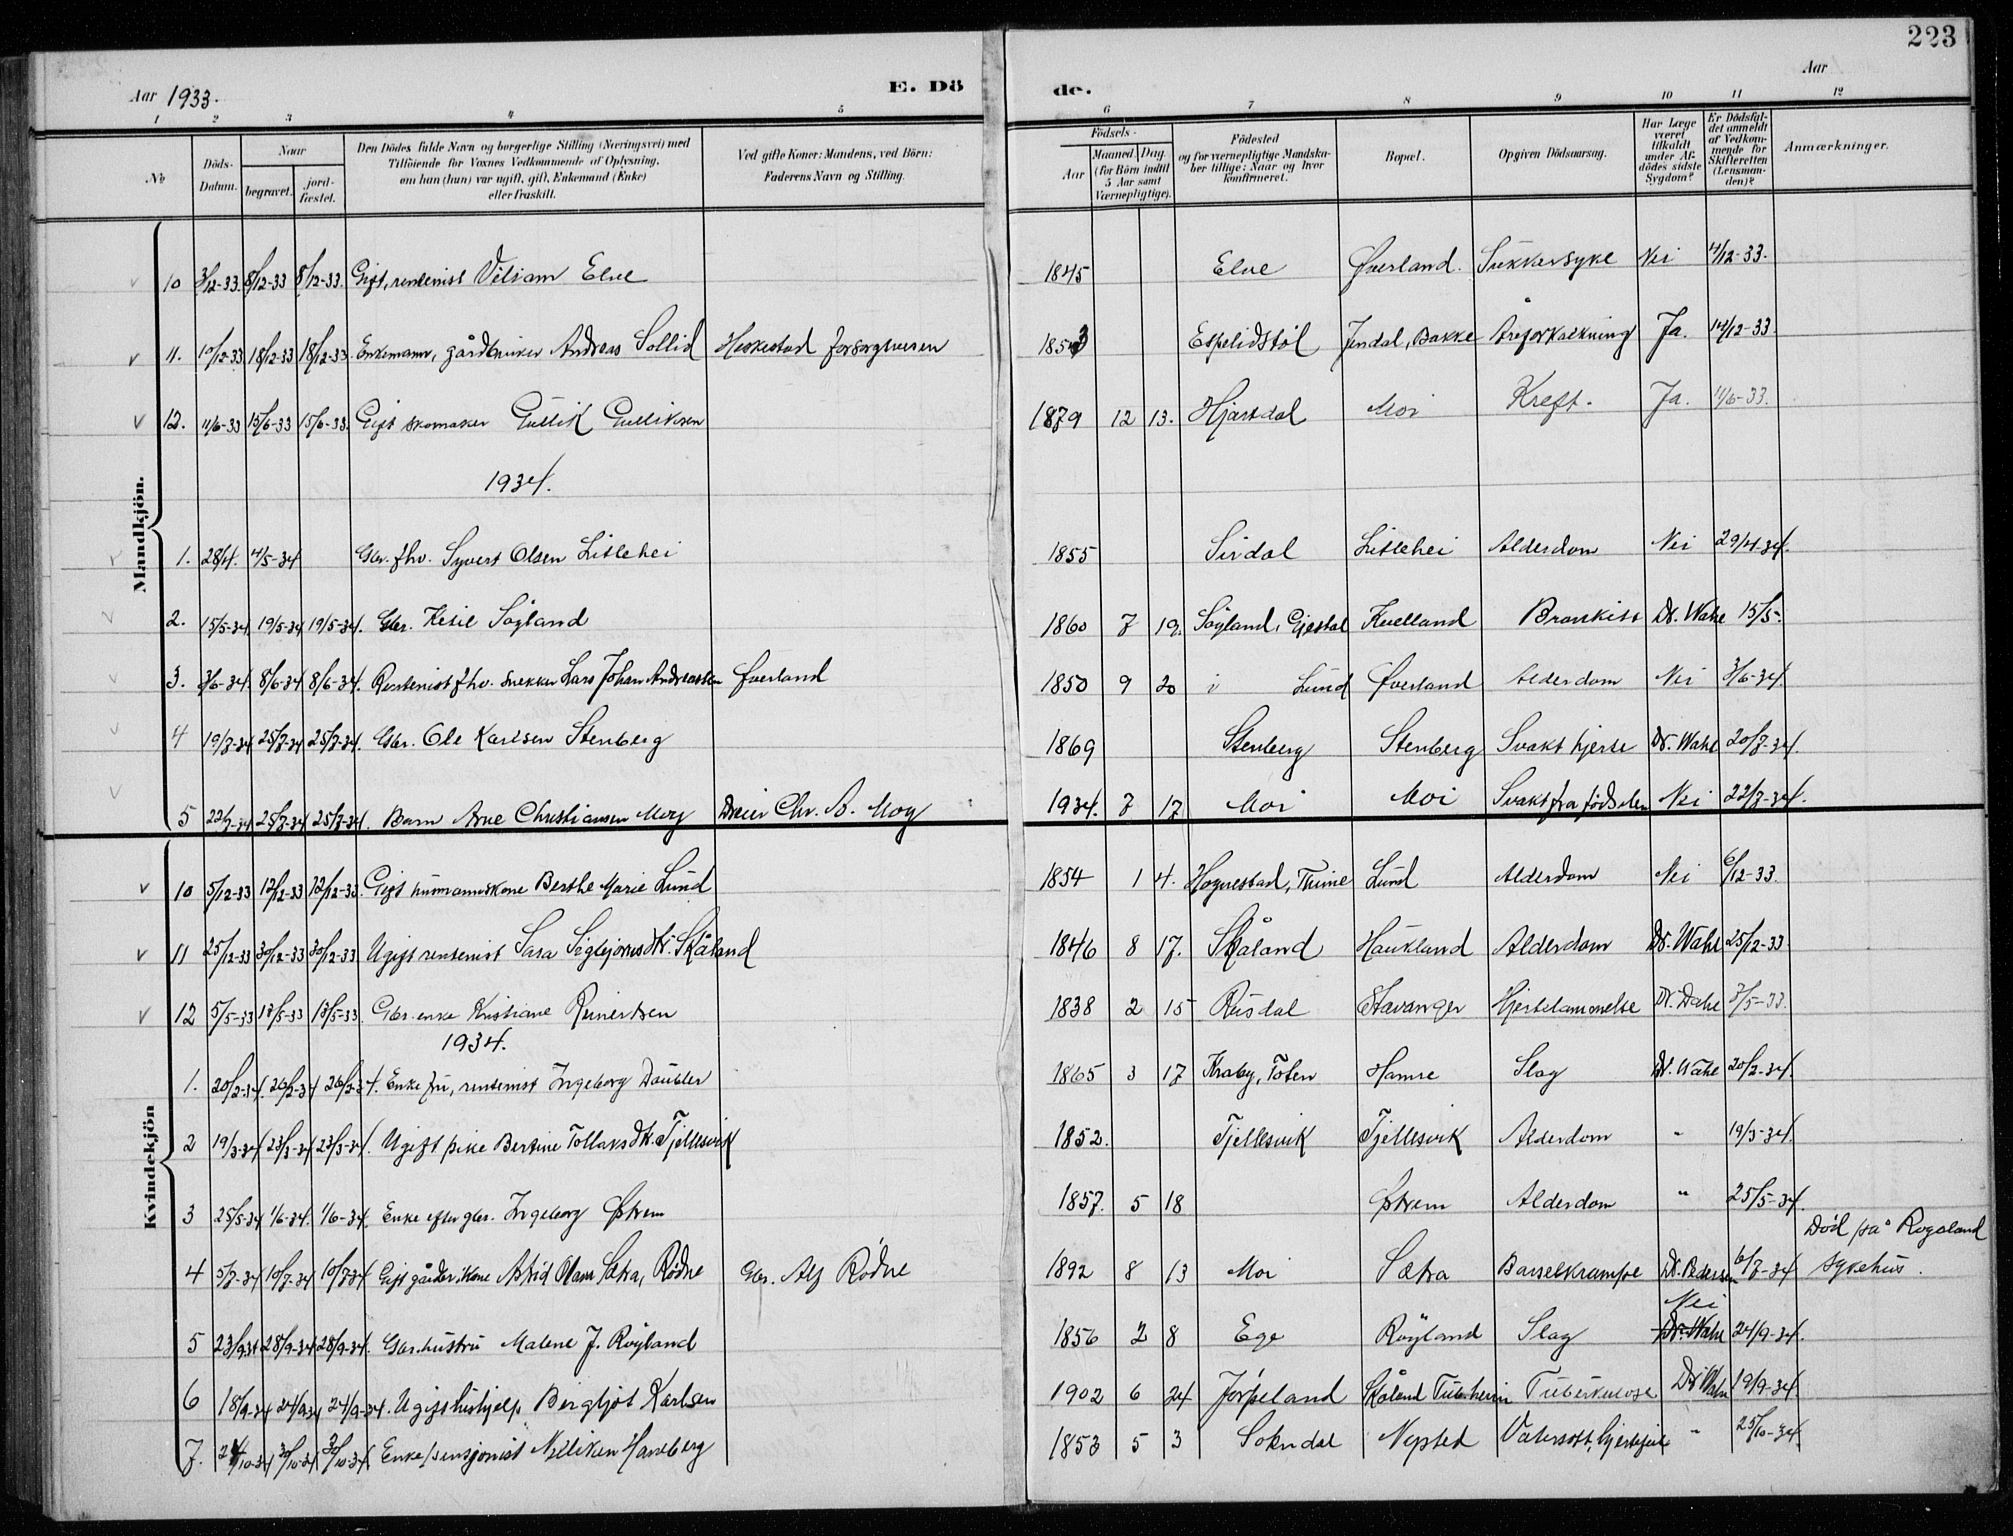 223
Aar 1933.
E. Dö de.
Aar
1 2 3 4 5 6 7 8 9 10 11 12
No
Döds-Datum.
Naar
begravet.
jord-fæstet.
Den Dödes fulde Navn og borgerlige Stilling (Næringsvei) med
Tilföiende for Voxnes Vedkommende af Oplysning,
om han (hun) var ugift, gift, Enkemand (Enke)
eller fraskilt.
Ved gifte Koner: Mandens, ved Börn:
Faderens Navn og Stilling.
Födsels-
Aar
Maaned. Dag.
(for Börn indtil
5 Aar samt
Værnepligtige).
Födested
og for værnepligtige Mandska-
ber tillige: Naar og hvor
konfirmeret.
Bopæl.
Opgiven Dödsaarsag.
Har Læge
været
tilkaldt
under Af-
dödes sidste
Sygdom?
Er Dödsfal-
det anmeldt
af Vedkom-
mende for
Skifteretten
(Lensman-
den)?
Anmærkninger.
Mandkjön.
10 3/12-33. 8/12-33 8/12-33. Gift, rentenist Viliam Elve 1845 Elve Øverland. Sukkersyke Nei 4/12-33.
11. 10/12-33 18/12-33 18/12-33 Enkemann, gårdbruker Andreas Sollid Heskestad forsorgsvesen 1853 Espelidstöl Jendal, Bakke Åreforkalkning Ja. 14/12-33
12. 11/6-33 15/6-33 15/6-33. Gift skomaker Gullik Gulliksen 1879 12 13. Hjartdal Moi Kreft. Ja. 11/6-33.
1934.
1. 28/4. 4/5-34 Gbr. fhv. Syvert Olsen Litlehei 1855 Sirdal Litlehei Alderdom Nei 29/4-34.
2. 15/5-34. 19/5-34 19/5-34. Gbr. Ketil Sögland 1860 7 19. Sögland, Gjestal Kvelland Bronkitt Dr. Wahl 15/5-.
3. 3/6-34. 8/6-34 8/6-34. Rentenist fhv. snekker Lars Johan Andreassen Øverland 1850 9 20 i Lund Øverland Alderdom Nei 3/6-34.
4 19/7-34 25/7-34 25/7-34. Gbr. Ole Karlsen Stenberg 1869 Stenberg Stenberg Svakt hjerte Dr. Wahl 20/7-34.
5 22/7-34 25/7-34 25/7-34. Barn Arne Christiansen Moy Dreier Chr. A. Moy 1934. 7 17 Moi Moi Svakt fra födselen Nei 22/7-34.
Kvindekjön
10 5/12-33 12/12-33 12/12-33. Gift husmannskone Berthe Marie Lund 1854 1 4. Hognestad, Thime Lund Alderdom Nei 6/12-33.
11 25/12-33 30/12-33 30/12-33. Ugift rentenist Sara Sigbjörnsdtr. Skåland 1846 8 17. Skåland Haukland Alderdom Dr. Wahl 25/12-33
12 5/5-33 13/5-33 13/5-33. Gbr. enke Kristiane Reinertsen 1838 2 15 Rusdal Stavanger Hjertelammelse Dr. Dahl 7/5-33.
1934.
1. 20/2-34. 26/2-34 26/2-34. Enke fru, rentenist Ingeborg Daubler 1865 3 17 Kraby, Toten Hamre Slag Dr. Wahl 20/2-34.
2 19/3-34 23/3-34 23/3-34. Ugift pike Bertine Tollaksdtr. Tjellesvik 1852. Tjellesvik Tjellesvik Alderdom " 19/3-34.
3 25/5-34 1/6-34. 1/6-34. Enke efter gbr. Ingeborg Östrem 1857. 5 18 Östrem Alderdom " 25/5-34.
4 5/7-34 10/7-34 10/7-34 Gift gårdbr.kone Astrid Sætra, Rödne Gbr. Alf Rödne 1892 8 13 Moi Sætra Barselkrampe Dr. Pedersen 6/7-34 Död på Rogaland
sykehus.
5 23/9-34 28/9-34 28/9-34. Gbr. hustru Malene J. Röyland 1856 2 8 Ege Röyland Slag Nei Dr. Wahl 24/9-34.
6 18/9-34 24/9-34 24/9-34. Ugift hushjelp Bergljot Karlsen 1902 6 24 Jörpeland Skåland Tub.heim Tuberkulose Dr. Wahl 19/9-34.
7. 24/10-34 30/10-34 30/10-34. Enke pensjonist 1853 5 3 Sokndal Vatersott, hjertefeil " 25/10-34.